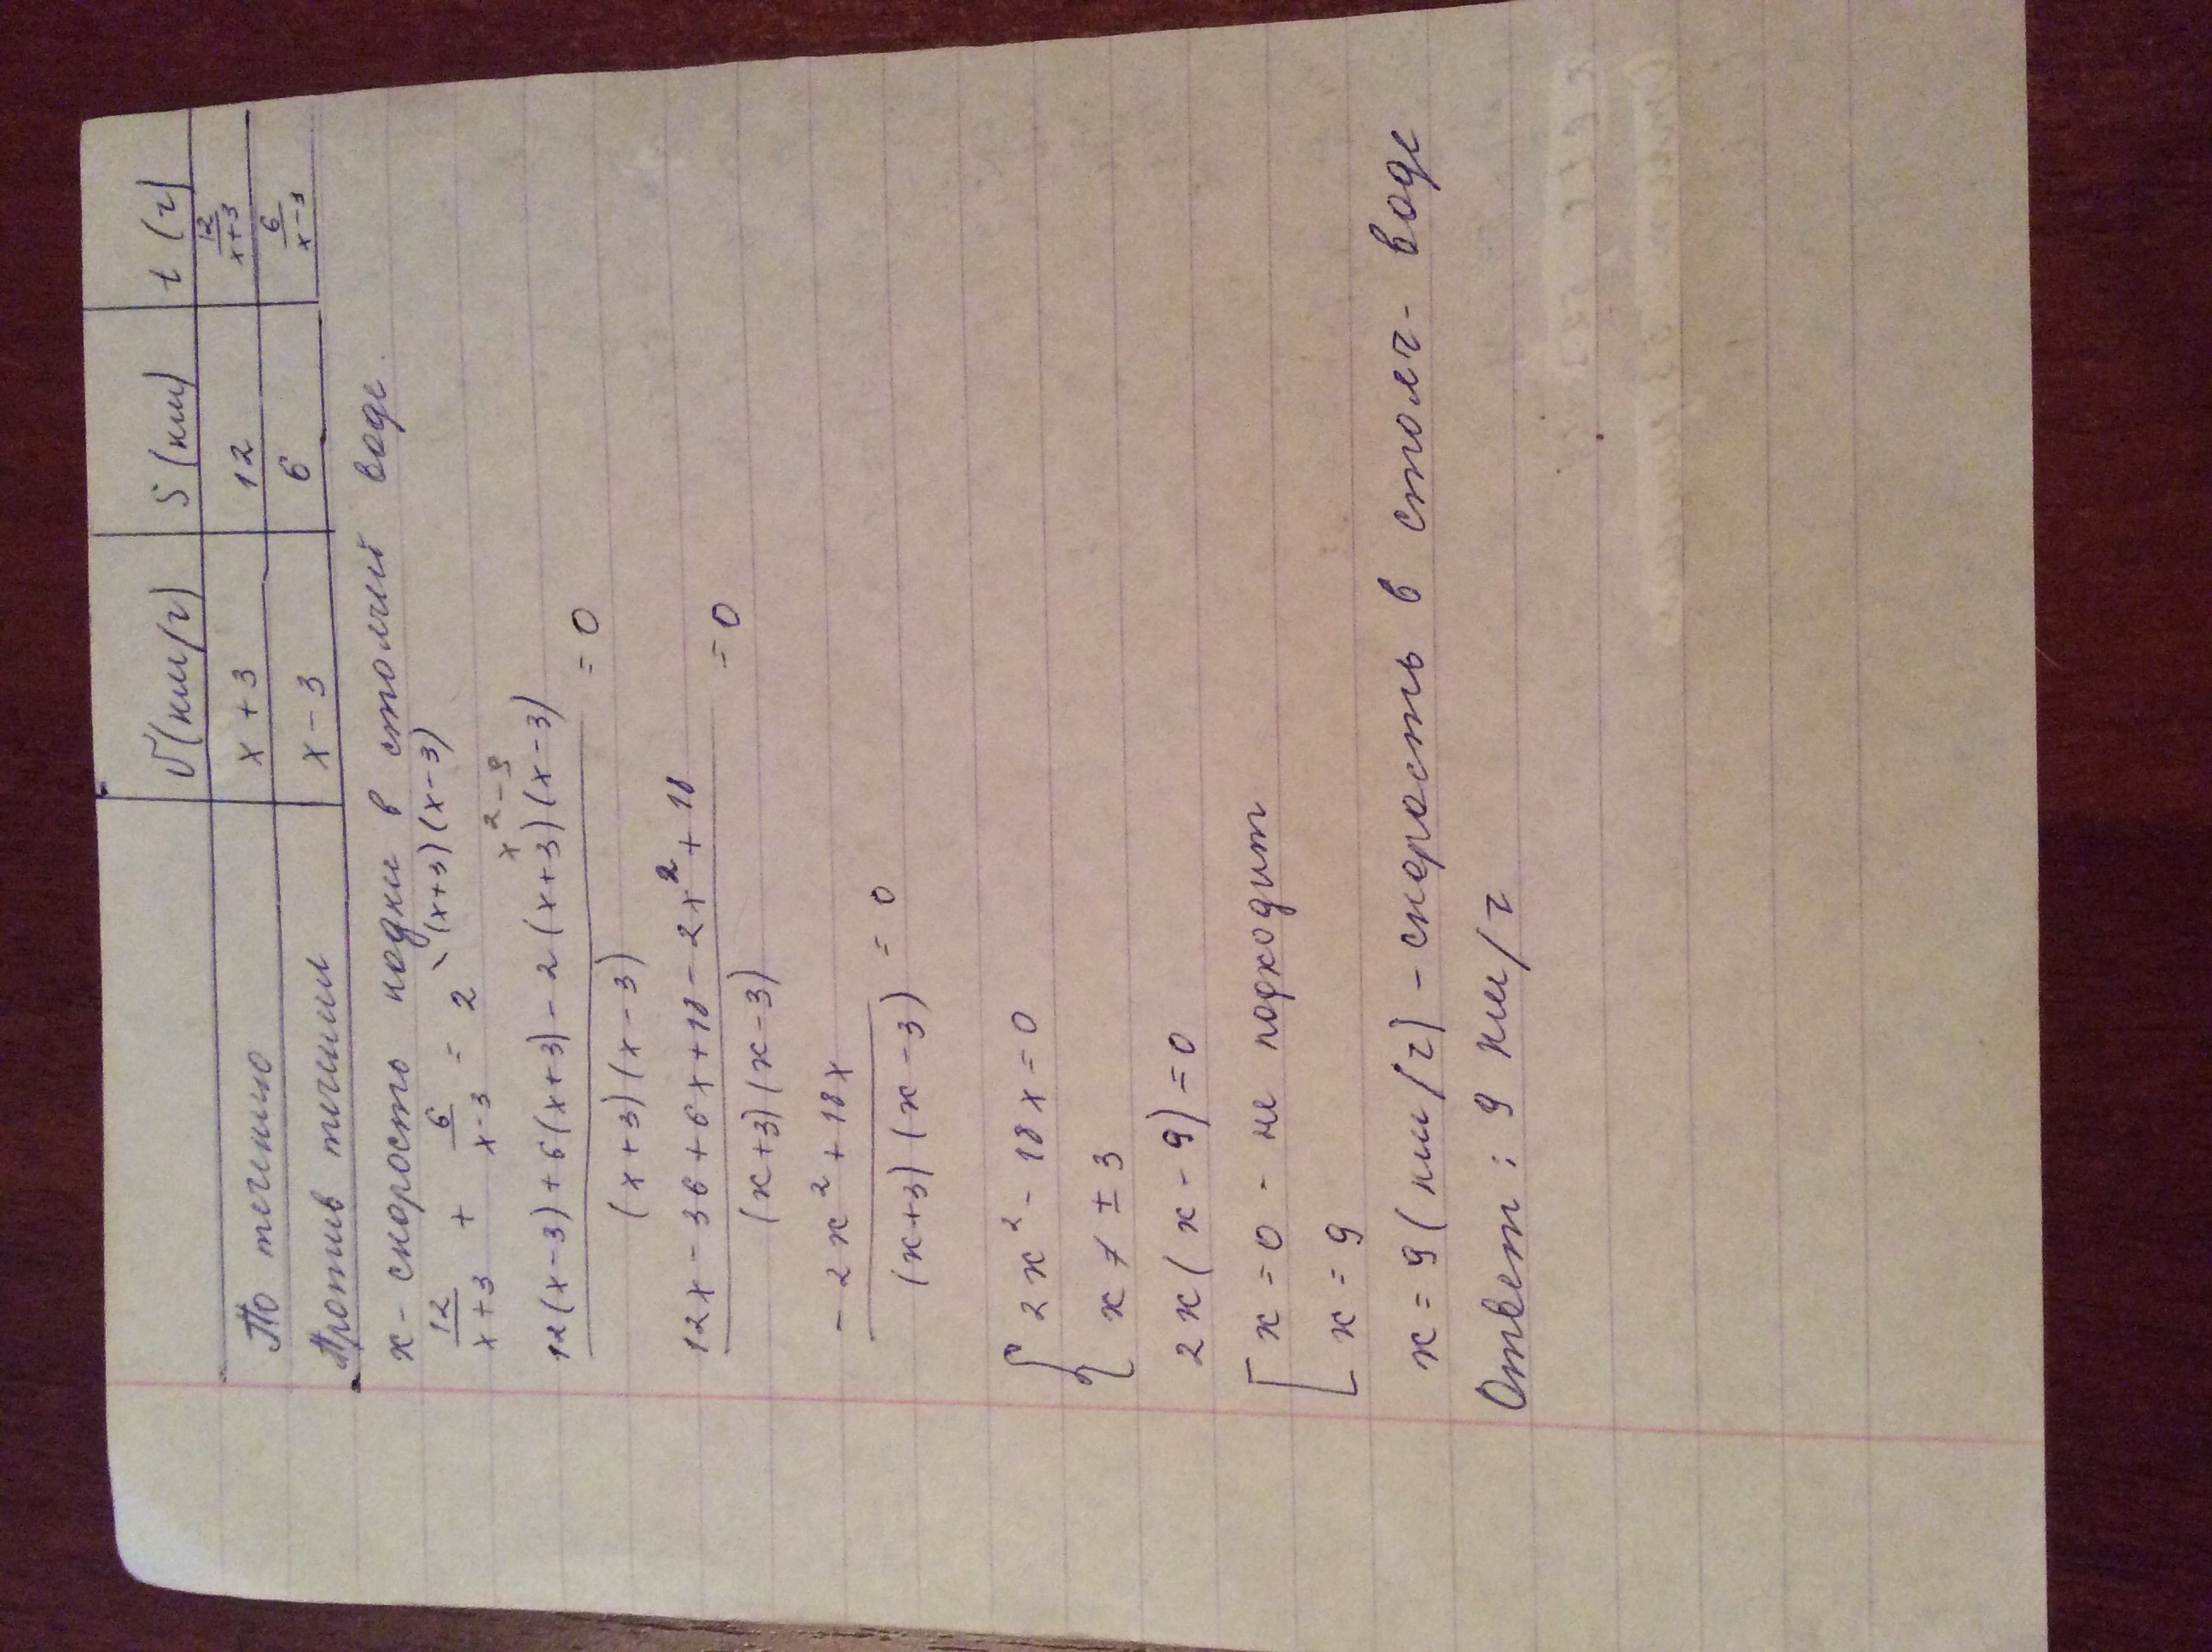 V(км/ч) S(км) t(ч)
По течению x+3 12 12/x+3
Против течения x-3 6 6/x-3
x - скорость лодки в стоячей воде
12/x+3 + 6/x-3 = 2 \(x+3)(x-3)
x²-9
12(x-3)+6(x+3)-2(x+3)(x-3)/(x+3)(x-3) = 0
12x-36+6x+18-2x²+18/(x+3)(x-3) = 0
-2x²+18x/(x+3)(x-3) = 0
{ 2x²-18x=0
x≠±3
2x(x-9)=0
[ x=0 - не подходит
x=9
x=9(км/ч) - скорость в стояч. воде
Ответ: 9 км/ч